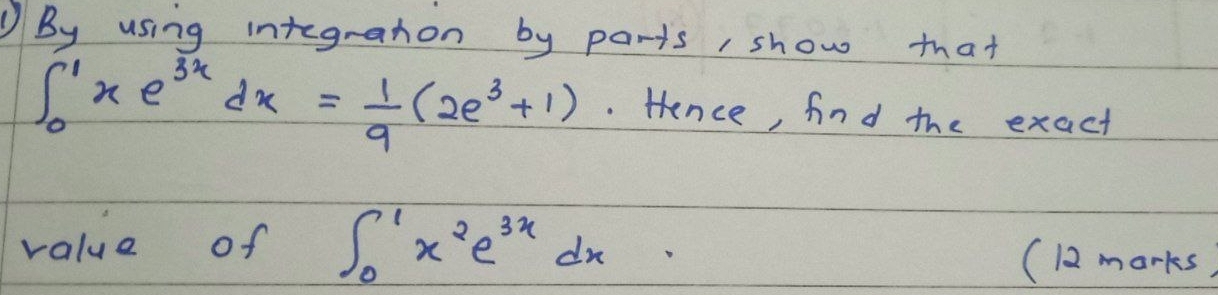 1) By using integration by parts, show that
∫₀¹ x e³ˣ dx = 1/9 (2e³ + 1). Hence, find the exact
value of ∫₀¹ x²e³ˣ dx. (12 marks)